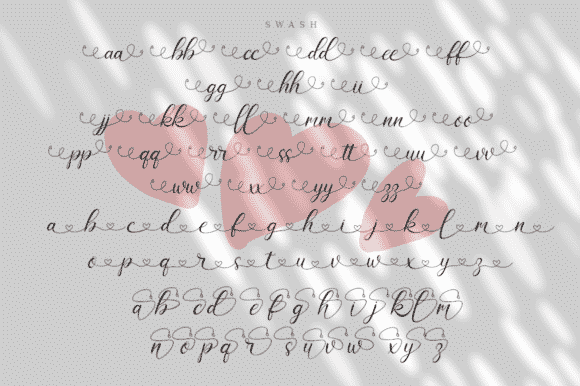 SWASH
aa bb cc dd ee ff
gg hh ii
jj kk ll mm nn oo
pp qq rr ss tt uu vv
ww xx yy zz
a b c d e f g h i j k l m n
o p q r s t u v w x y z
a b c d e f g h i j k l m
n o p q r s u v w x y z